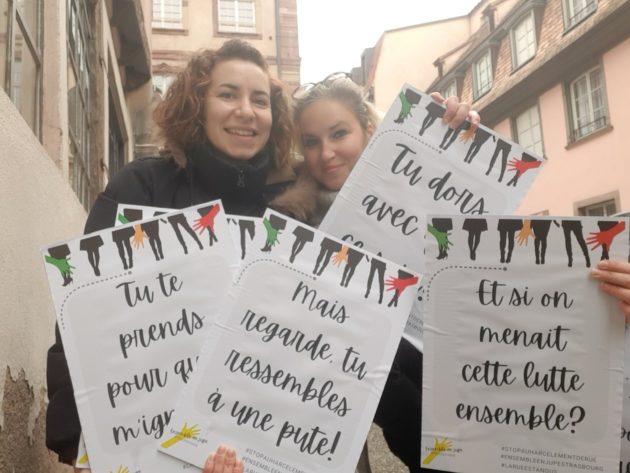 Tu te
prends
pour qu
m'ign
Mais
regarde, tu
ressembles
à une pute!
Tu dors
avec
Et si on
menait
cette lutte
ensemble?
#STOPAUHARCELEMENTDERUE
#ENSEMBLEENJUPESTRASBOURG
#LARUEESTANOUS
#STOPAUHARCELEMENT
#ENSEMBLEENJU